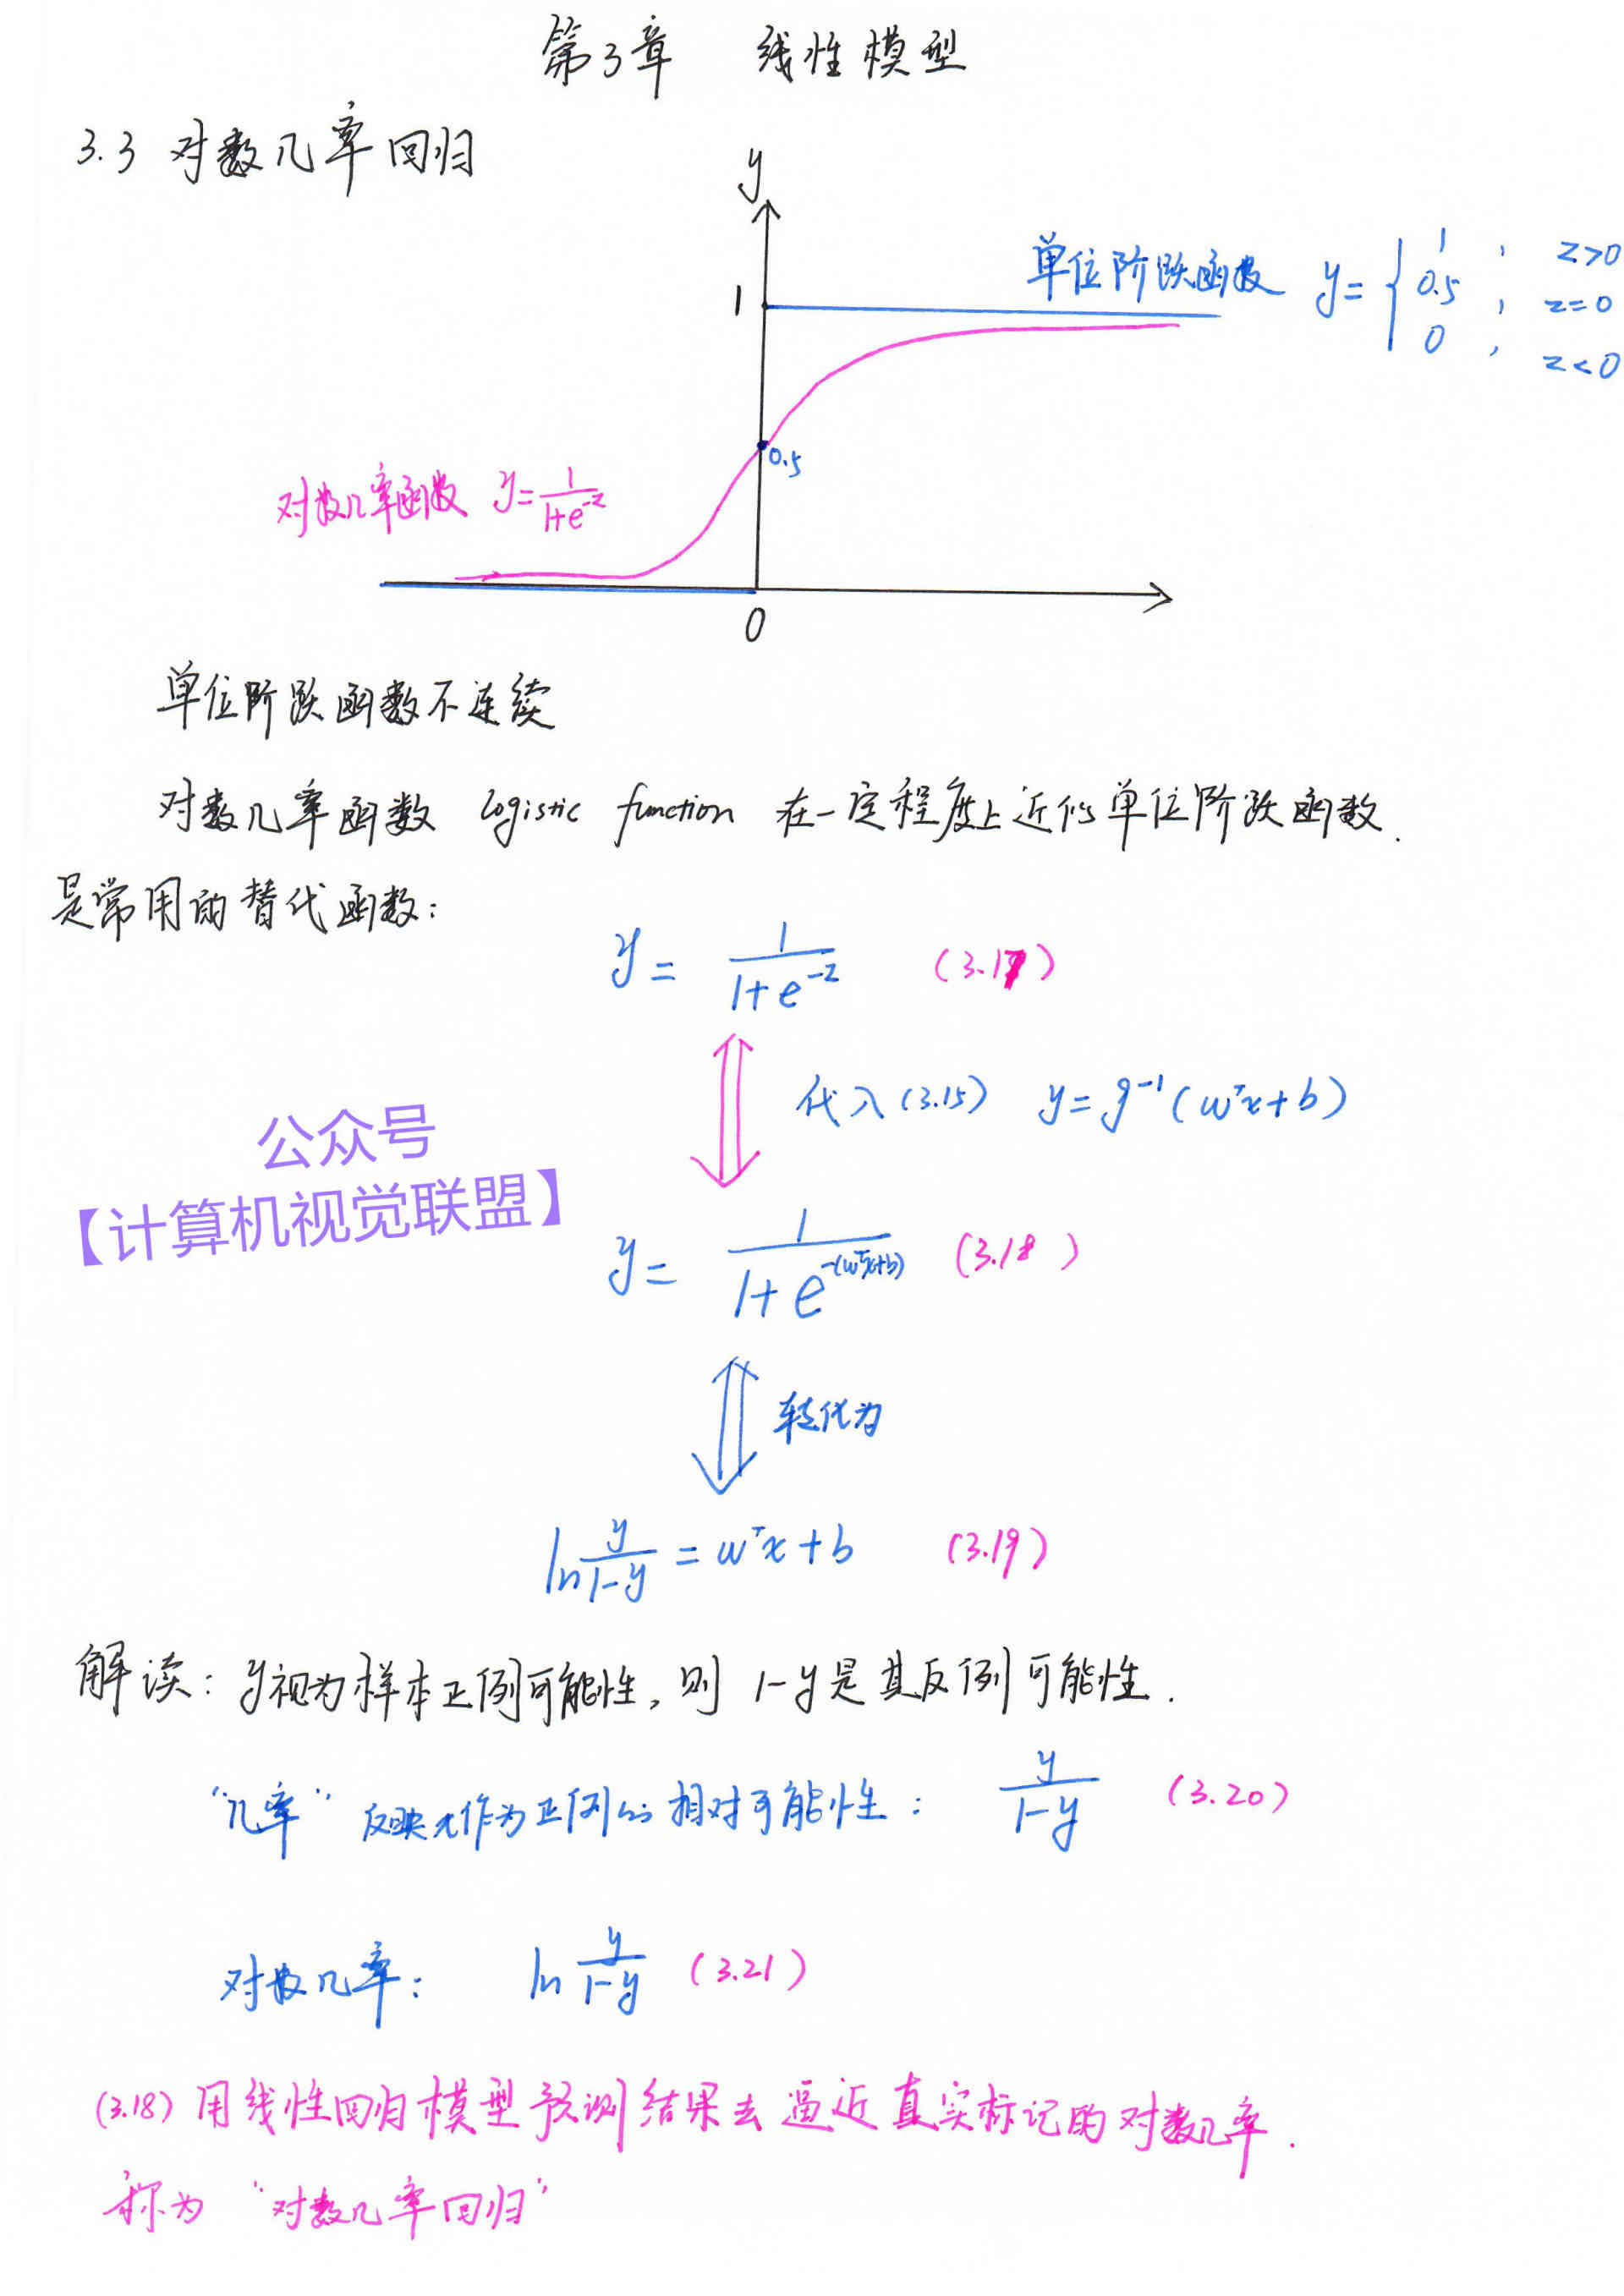 第3章 线性模型
3.3 对数几率回归
y
单位阶跃函数 y = { 1 , z>0
0.5 , z=0
0 , z<0
1
0.5
对数几率函数 y = 1/(1+e^-z)
0
单位阶跃函数不连续
对数几率函数 logistic function 在一定程度上近似单位阶跃函数.
是常用的替代函数:
y = 1/(1+e^-z) (3.17)
代入(3.15) y = g^-1(w^T x+b)
公众号
【计算机视觉联盟】
y = 1/(1+e^-(w^T x+b)) (3.18)
转化为
ln y/(1-y) = w^T x+b (3.19)
解读: y视为样本正例可能性, 则 1-y是其反例可能性.
“几率” 反映x作为正例的相对可能性: y/(1-y) (3.20)
对数几率: ln y/(1-y) (3.21)
(3.18) 用线性回归模型预测结果去逼近真实标记的对数几率.
称为 “对数几率回归”